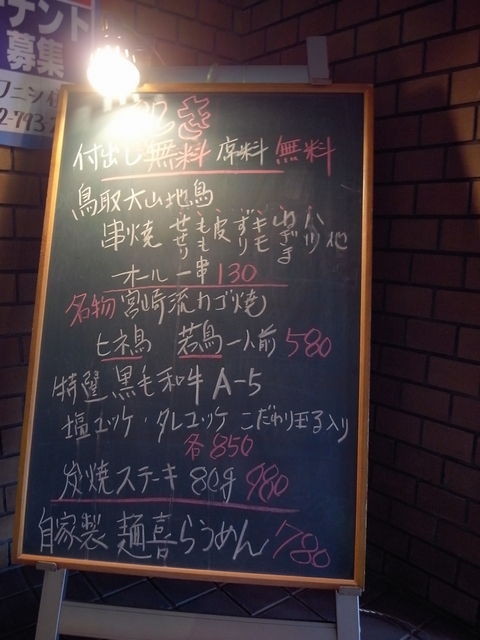 テナント
募集
付出し 無料 席料 無料
鳥取大山地鳥
串焼 せせり もも 皮 ずり キモ ハツ 他
オール一串 130
名物 宮崎流カゴ焼
ヒネ鳥 若鳥 一人前 580
特選 黒毛和牛 A-5
塩ユッケ・タレユッケ こだわり玉子入り
各850
炭焼ステーキ 80g 980
自家製 麺喜らうめん 780